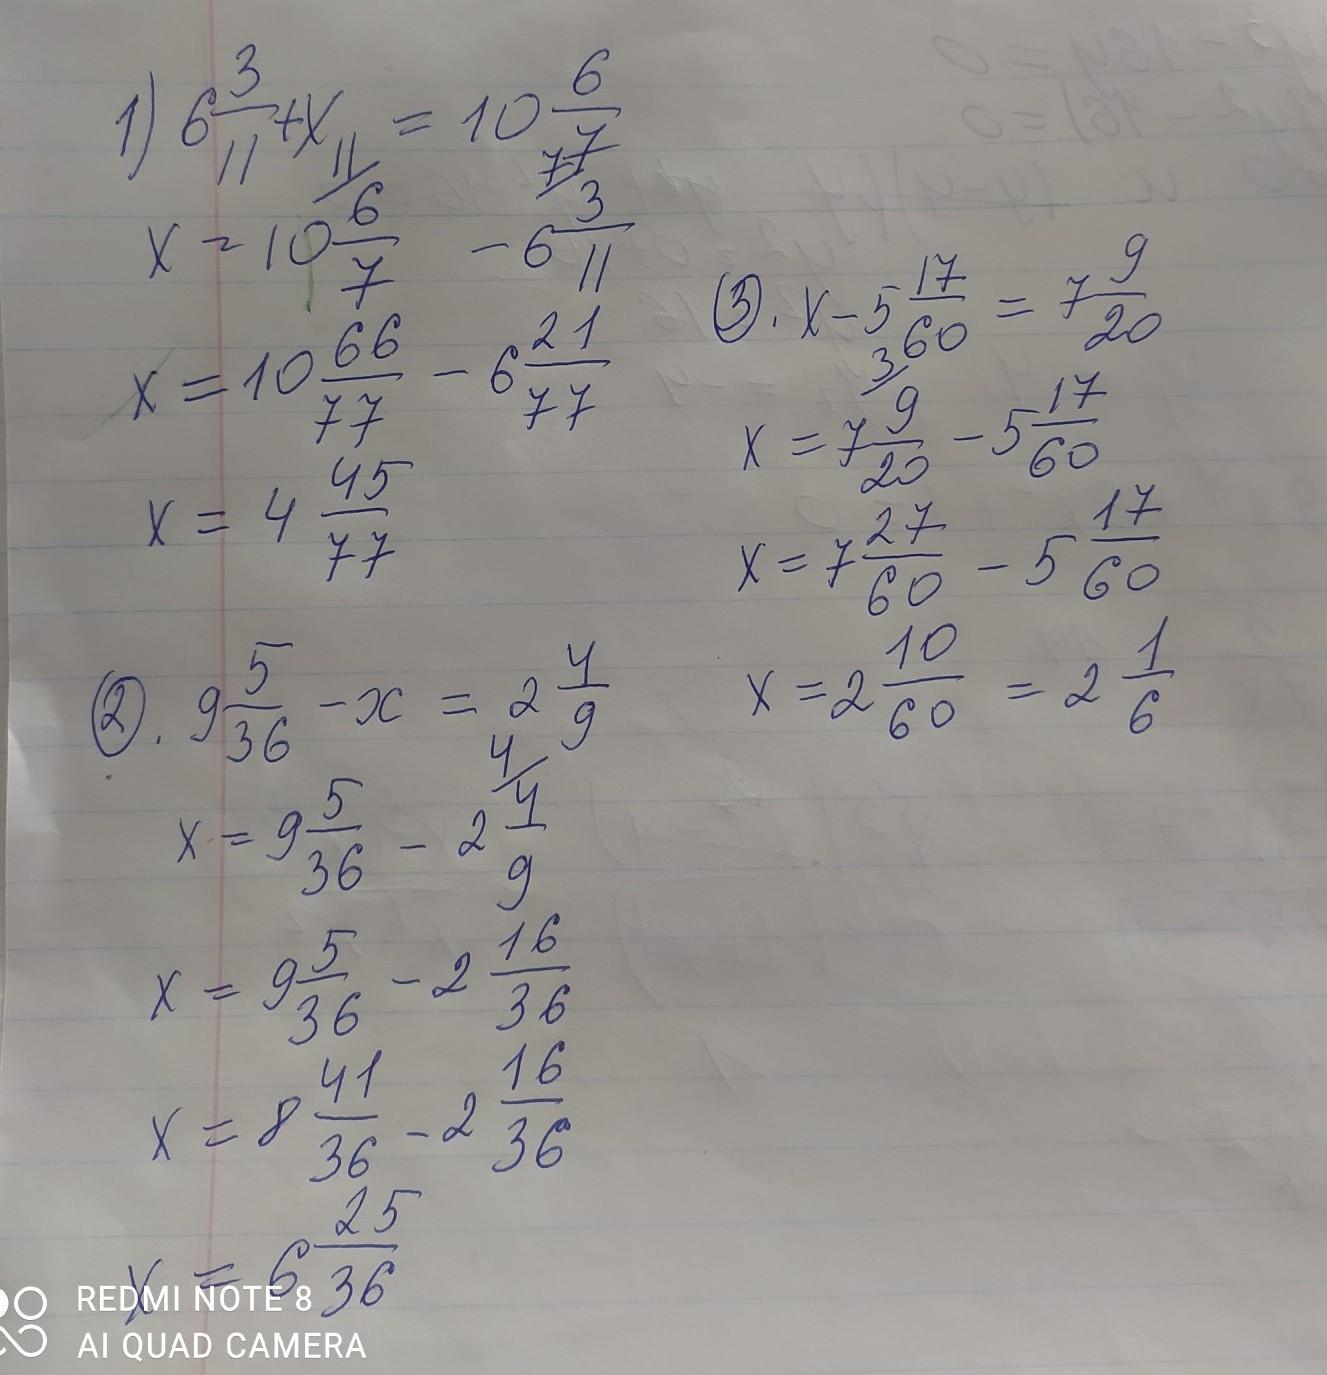 1) 6 3/11 + x = 10 6/7
x = 10 6/7 (11/ - 6 3/11 (7/
x = 10 66/77 - 6 21/77
x = 4 45/77
②. 9 5/36 - x = 2 4/9
x = 9 5/36 - 2 4/9 (4/
x = 9 5/36 - 2 16/36
x = 8 41/36 - 2 16/36
x = 6 25/36
③. x - 5 17/60 = 7 9/20
x = 7 9/20 (3/ - 5 17/60
x = 7 27/60 - 5 17/60
x = 2 10/60 = 2 1/6
REDMI NOTE 8
AI QUAD CAMERA